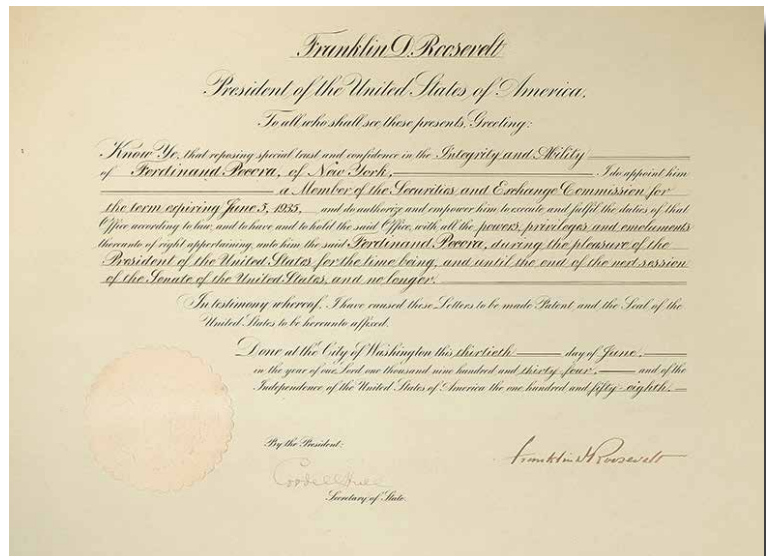 Franklin D. Roosevelt
President of the United States of America.
To all who shall see these presents, Greeting:
Know Ye, that reposing special trust and confidence in the Integrity and Ability
of Ferdinand Pecora, of New York, I do appoint him
a Member of the Securities and Exchange Commission for
the term expiring June 5, 1935, and do authorize and empower him to execute and fulfil the duties of that
Office according to law, and to have and to hold the said Office, with all the powers, privileges and emoluments
thereunto of right appertaining, unto him the said Ferdinand Pecora, during the pleasure of the
President of the United States for the time being, and until the end of the next session
of the Senate of the United States, and no longer.
In testimony whereof, I have caused these Letters to be made Patent and the Seal of the
United States to be hereunto affixed.
Done at the City of Washington this thirtieth day of June,
in the year of our Lord one thousand nine hundred and thirty four, and of the
Independence of the United States of America the one hundred and fifty-eighth.
By the President:
Franklin D Roosevelt
Cordell Hull
Secretary of State.